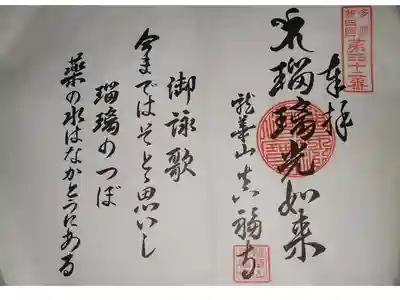 奉拝
瑠璃光如来
龍華山 真福寺
御詠歌
今まではそと思いし
瑠璃のつぼ
薬の水はなかとうにある